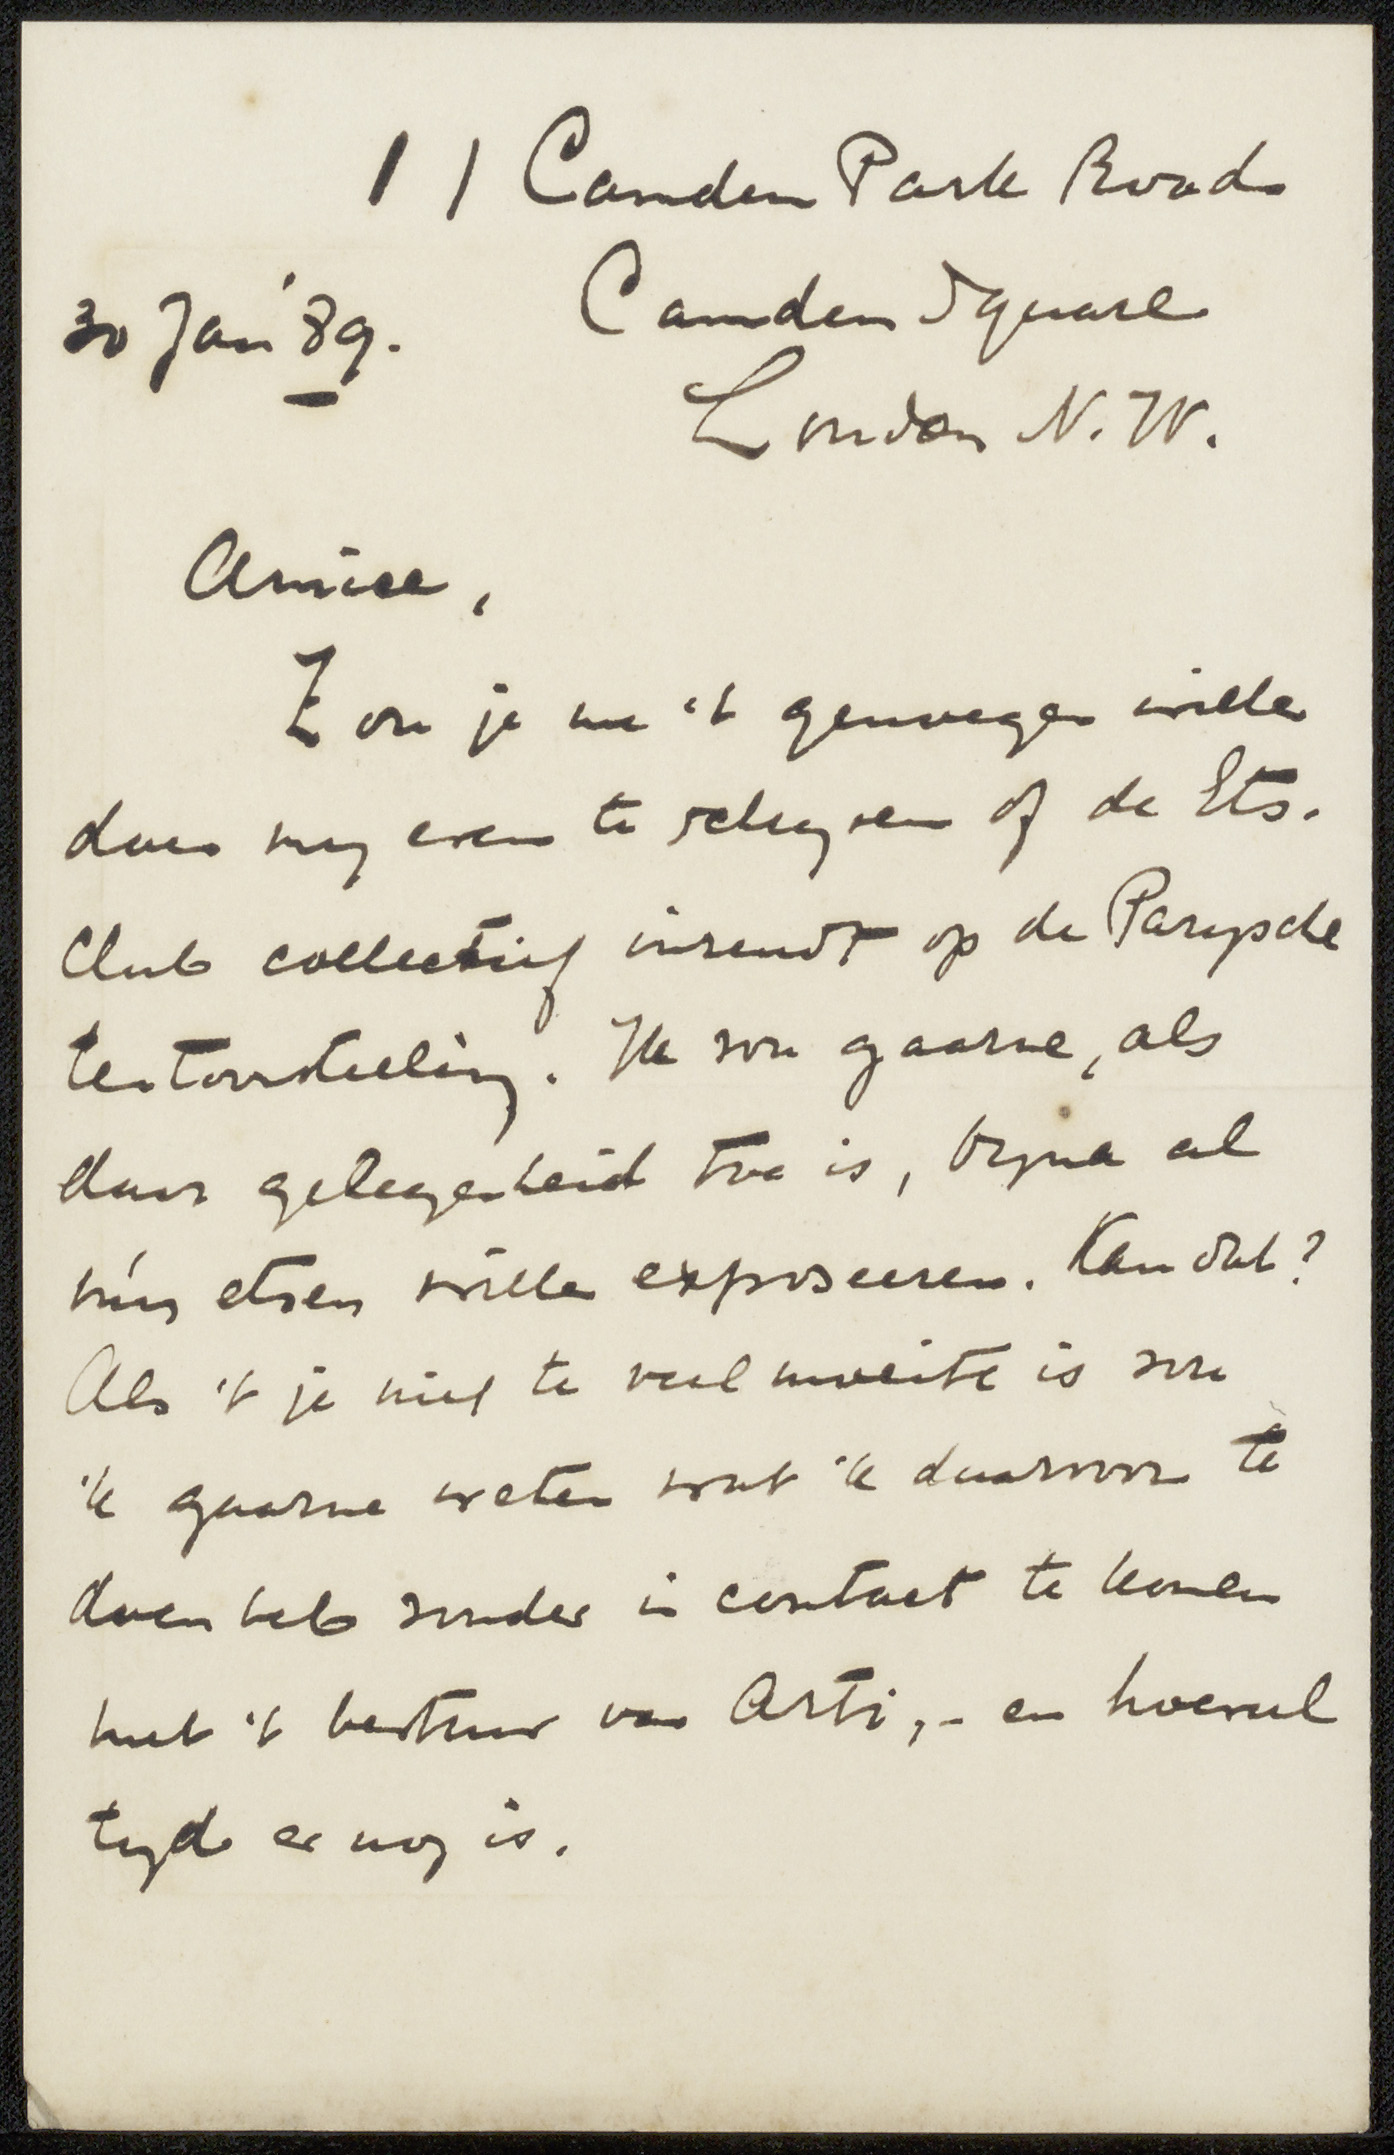 11 Camden Park Road
Camden Square
30 Jan '89.
London N.W.
Amice,
Zou je me 't genoegen willen
doen my even te schryven of de Ets.
Club collectief inzendt op de Parysche
tentoonstelling. Ik zou gaarne, als
daar gelegenheid toe is, byna al
myn etsen willen exposeeren. Kan dat?
Als 't je niet te veel moeite is zou
'k gaarne weten wat 'k daarvoor te
doen heb zonder in contact te komen
met 't bestuur van Arti, - en hoeveel
tyd er nog is.